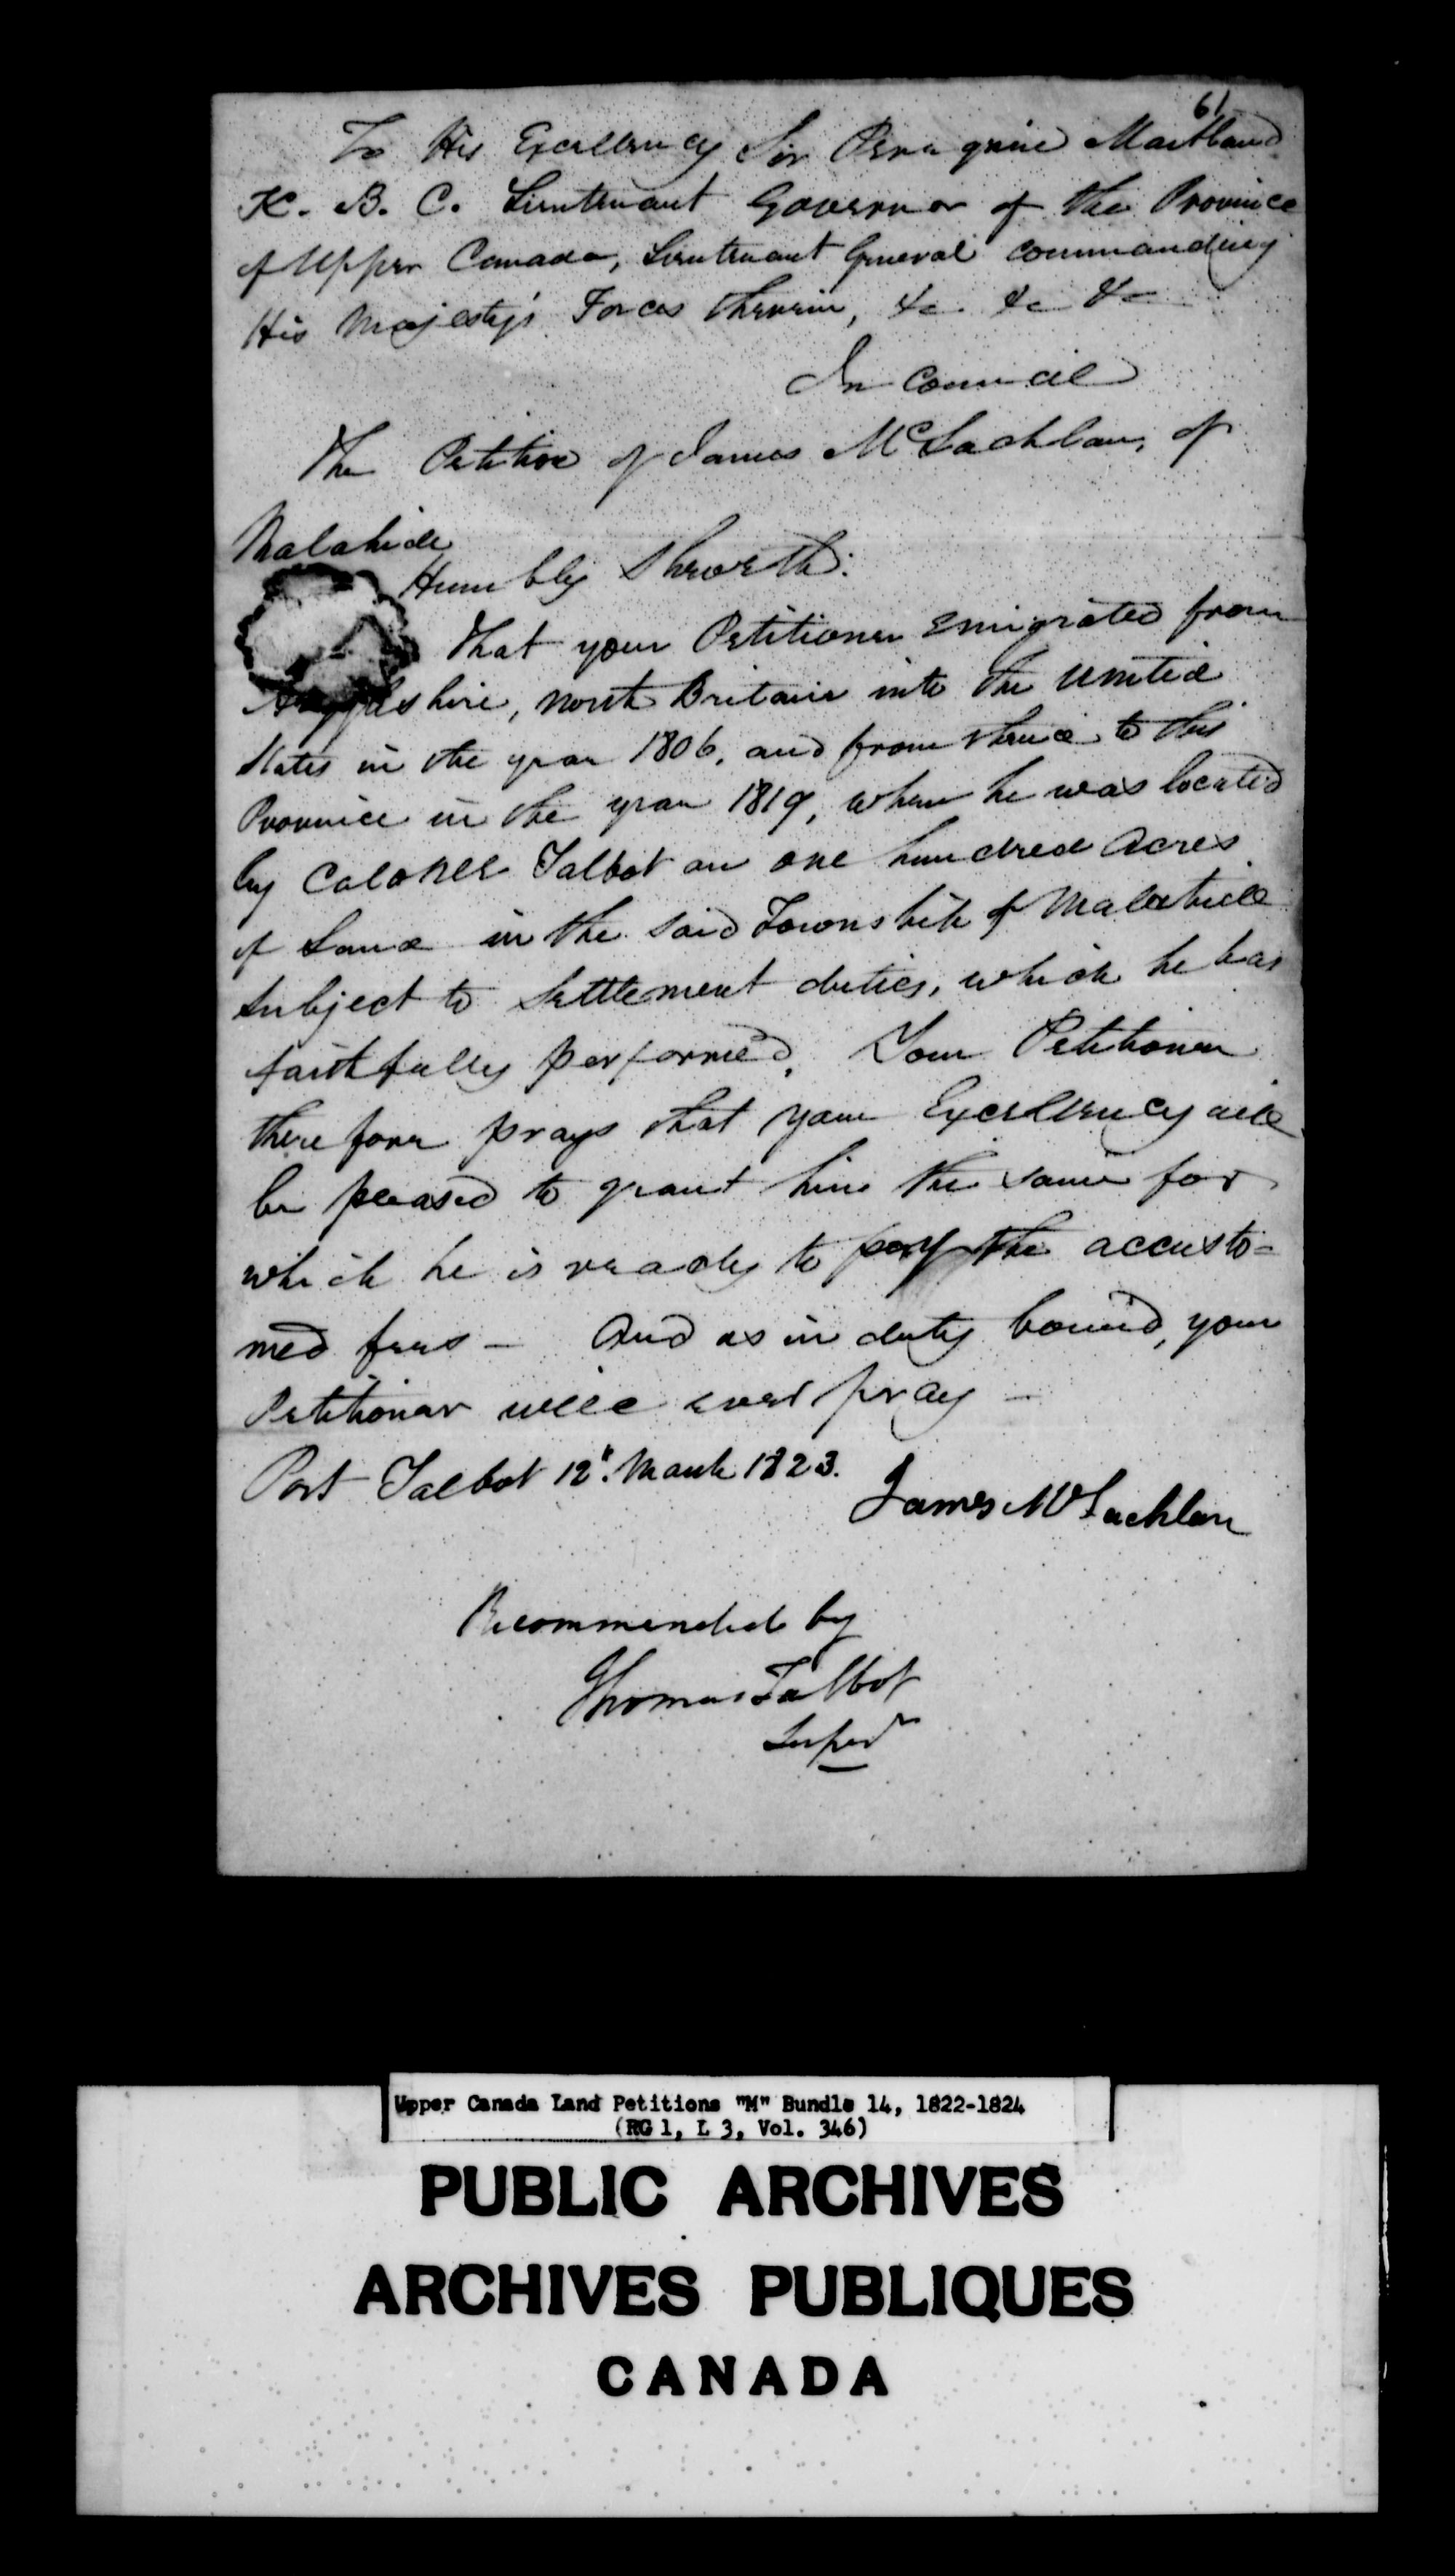 61
To His Excellency Sir Peregrine Maitland
K. B. C. Lieutenant Governor of the Province
of Upper Canada, Lieutenant General commanding
His Majesty's Forces therein, &c. &c &c
In Council
The Petition of James McLachlan, of
Malahide
Humbly Sheweth:
That your Petitioner emigrated from
Argyleshire, North Britain into the United
States in the year 1806, and from thence to this
Province in the year 1819, when he was located
by Colonel Talbot on one hundred Acres
of Land in the said Township of Malahide
subject to Settlement duties, which he has
faithfully performed. Your Petitioner
therefore prays that your Excellency will
be pleased to grant him the same for
which he is ready to pay the accusto=
med fees — And as in duty bound, your
Petitioner will ever pray —
Port Talbot 12". March 1823.
James McLachlan
Recommended by
Thomas Talbot
Upper Canada Land Petitions "M" Bundle 14, 1822-1824
(RG 1, L 3, Vol. 346)
PUBLIC ARCHIVES
ARCHIVES PUBLIQUES
CANADA